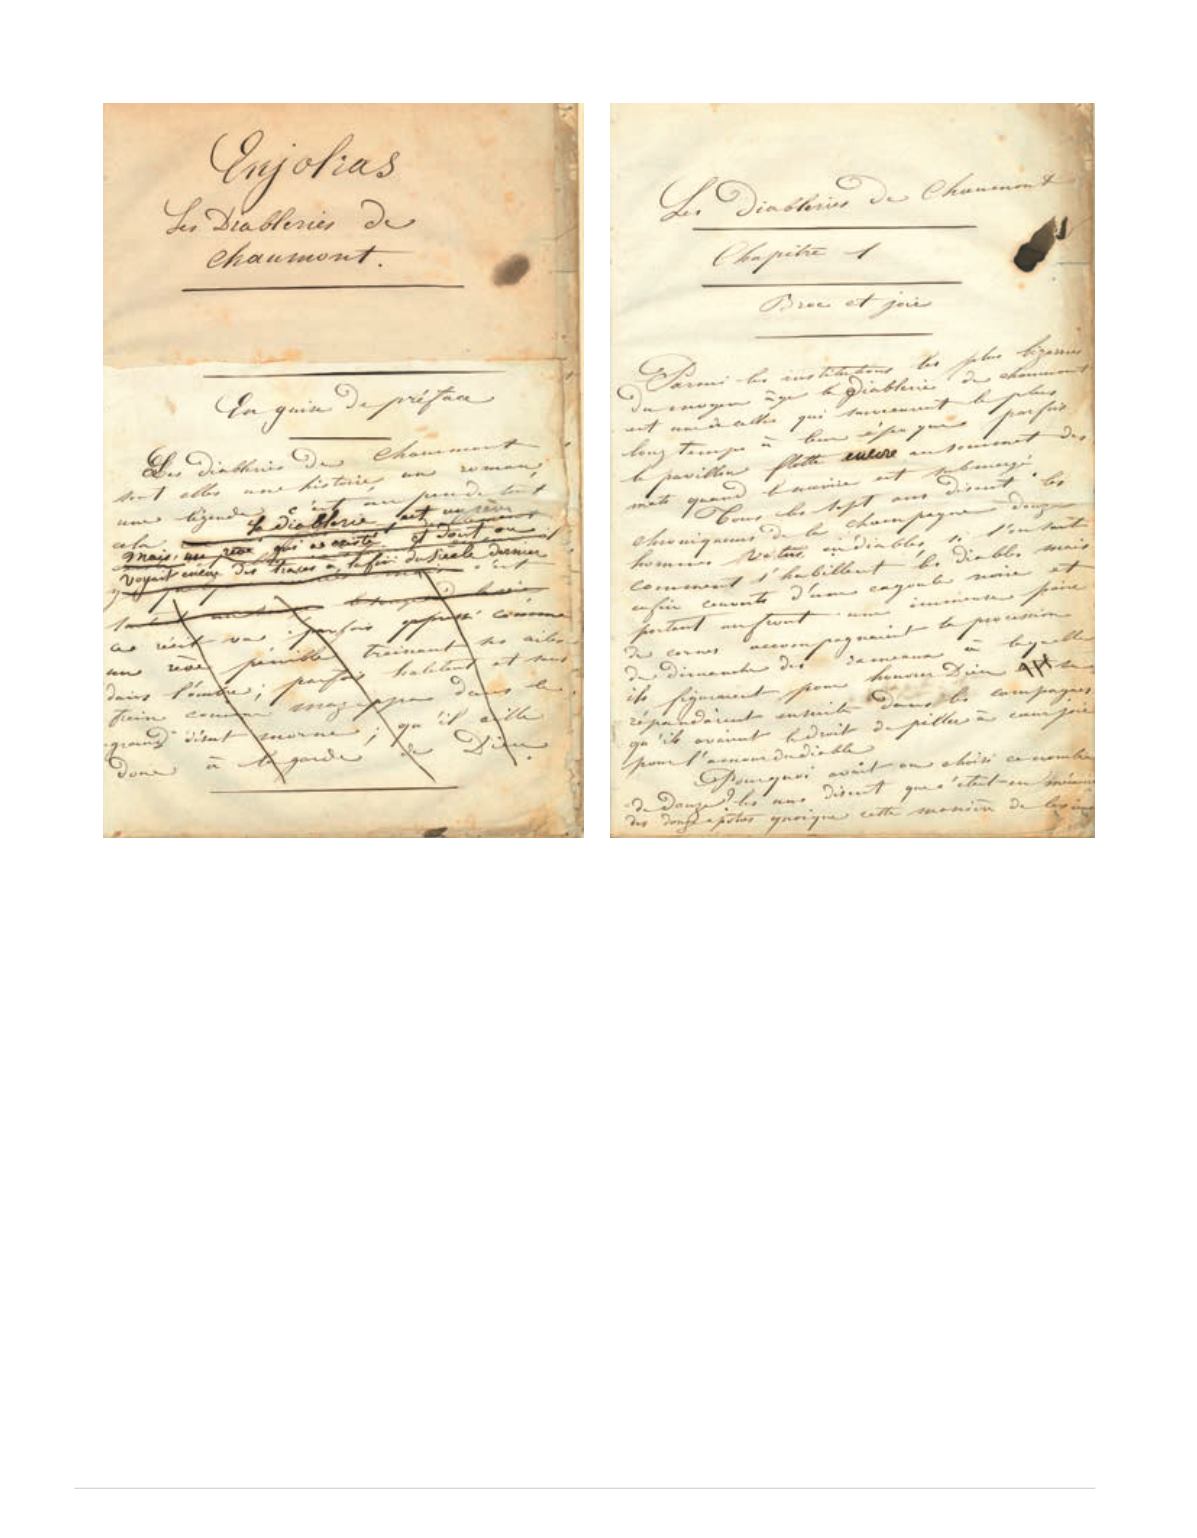 Enjolras
Les Diableries de
Chaumont.
En guise de préface
Les diableries de Chaumont
sont elles une histoire, un roman,
une légende, c'est un peu de tout
cela. la diablerie est un rêve
mais, un rêve qui a existé et dont on
voyait encore des traces à la fin du siècle dernier
ce récit va parfois oppressé comme
un rêve pénible trainant ses ailes
dans l'ombre; parfois haletant et sans
frein comme mazeppa dans le
grand désert morne; qu'il aille
donc à la garde de Dieu.
Les Diableries de Chaumont
Chapitre 1
Broc et joie
Parmi les institutions les plus bizarres
du moyen âge la diablerie de chaumont
est une de celles qui survecurent le plus
long temps à leur époque parfois
le pavillon flotte encore au sommet des
mats quand le navire est submergé
Tous les sept ans disent les
chroniqueurs de la champagne douze
hommes vetus en diables si l'on sait
comment s'habillent les diables mais
enfin couverts d'une cagoule noire et
portant au front une immense paire
de cornes accompagnaient la procession
du dimanche des rameaux à laquelle
ils figuraient pour honorer Dieu se
répandaient ensuite dans les campagnes
qu'ils avaient le droit de piller à coeur joie
pour l'amour du diable
Pourquoi avait on choisi ce nombre
de douze? les uns disent que c'était en mémoire
des douze apotres quoique cette manière de les